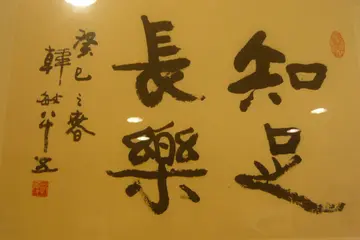 知足
長樂
癸巳之春
韓敏